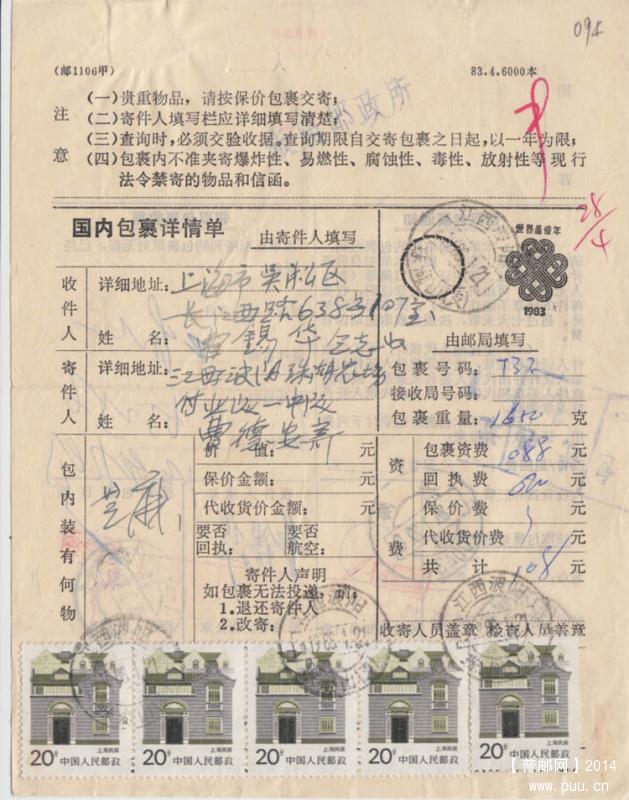 094
(邮1106甲) 83.4.6000本
注意
(一)贵重物品，请按保价包裹交寄；
(二)寄件人填写栏应详细填写清楚；
(三)查询时，必须交验收据。查询期限自交寄包裹之日起，以一年为限；
(四)包裹内不准夹寄爆炸性、易燃性、腐蚀性、毒性、放射性等现行
法令禁寄的物品和信函。
邮政所
28/4
国内包裹详情单 由寄件人填写
江西波阳
世界通信年
1983
收件人
详细地址：上海市吴淞区
长江西路638号107室
姓名：曹锡华
寄件人
详细地址：江西波阳珠湖农场
姓名：曹德安寄
由邮局填写
包裹号码：732
接收局号码：
包裹重量： 克
包内装有何物
芝麻
价值： 元
保价金额： 元
代收货价金额： 元
要否回执： 要否航空：
寄件人声明
如包裹无法投递，请：
1.退还寄件人
2.改寄：
资费
包裹资费 088 元
回执费 元
保价费 元
代收货价费 元
共计 1.08 元
收寄人员盖章 检查人员盖章
江西波阳
江西波阳
江西波阳
20分 上海民居 中国人民邮政
20分 上海民居 中国人民邮政
20分 上海民居 中国人民邮政
20分 上海民居 中国人民邮政
20分 上海民居 中国人民邮政
【普邮网】2014
www.puu.cn